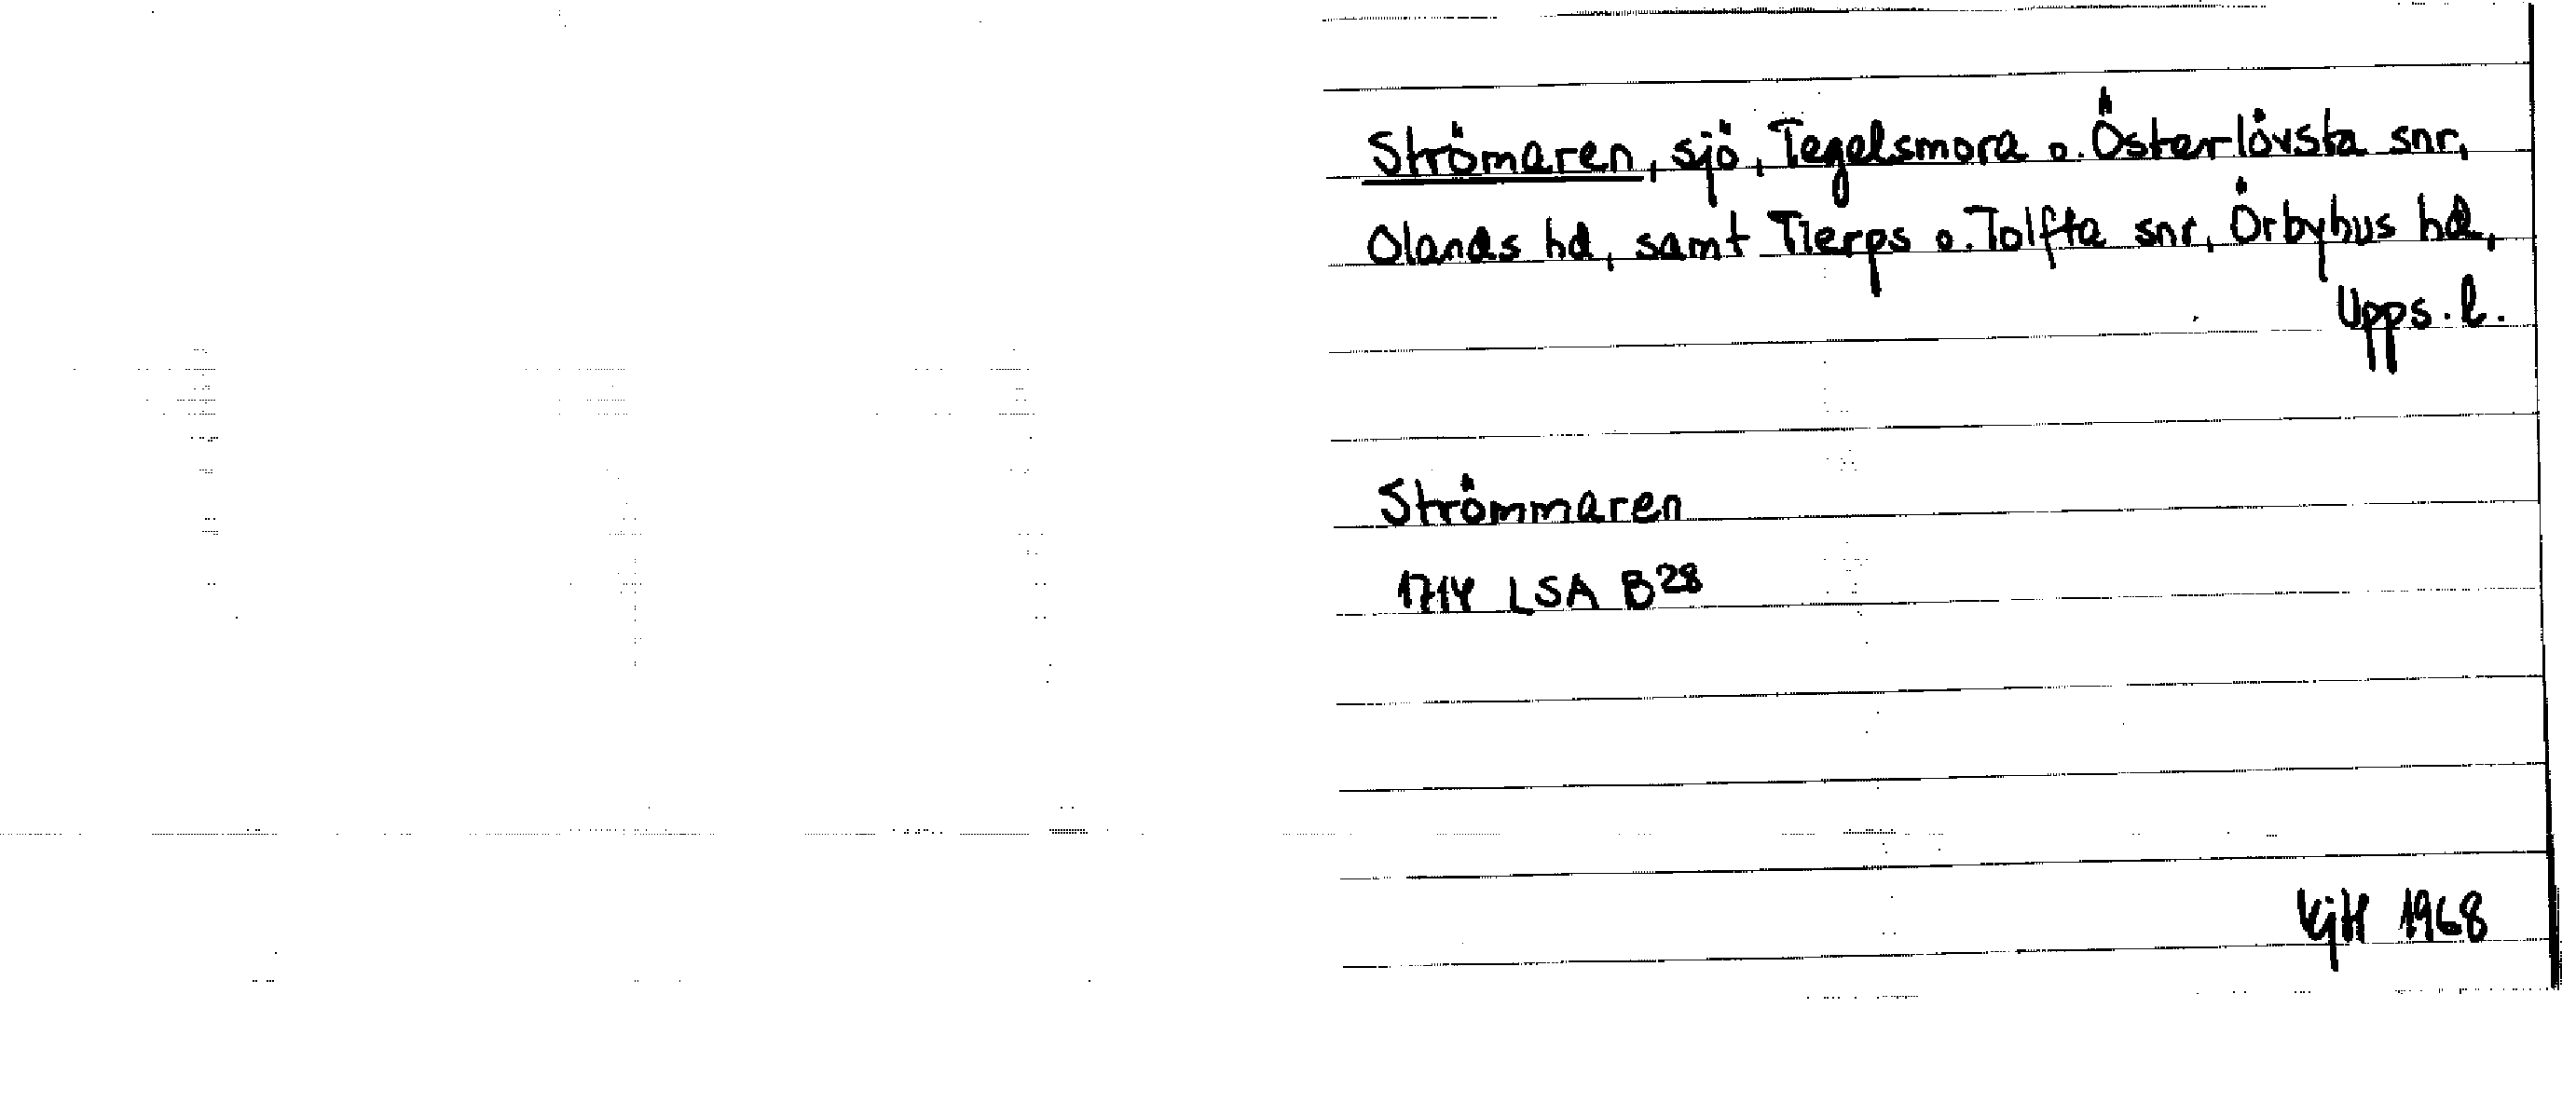 Strömaren, sjö, Tegelsmora o. Österlövsta snr,
Olands hd, samt Tierps o. Tolfta snr, Örbyhus hd,
Upps. l.
Strömmaren
1714 LSA B28
KjH 1968